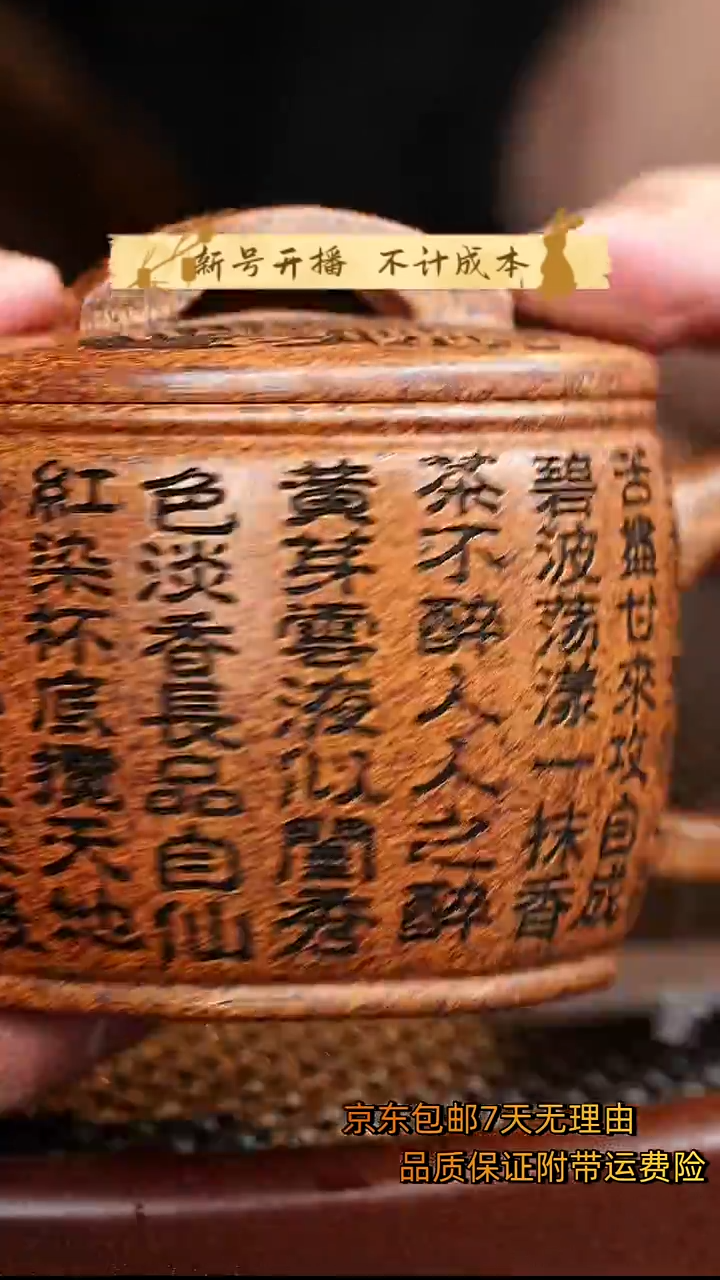 新号开播 不计成本
苦盡甘來攻自成
碧波荡漾一抹香
茶不醉人人之醉
黃芽雲液似閨秀
色淡香長品自仙
紅染杯底攬天地
京东包邮7天无理由
品质保证附带运费险